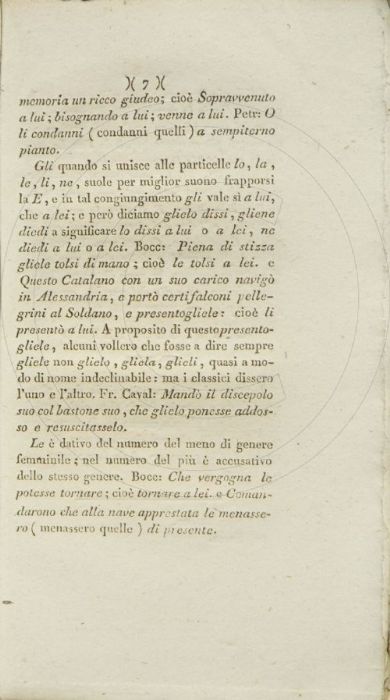 )( 7 )(
memoria un ricco giudeo; cioè Sopravvenuto
a lui; bisognando a lui; venne a lui. Petr: O
li condanni ( condanni quelli ) a sempiterno
pianto.
Gli quando si unisce alle particelle lo, la,
le, li, ne, suole per miglior suono frapporsi
la E, e in tal congiungimento gli vale sì a lui,
che a lei; e però diciamo glielo dissi, gliene
diedi a significare lo dissi a lui o a lei, ne
diedi a lui o a lei. Bocc: Piena di stizza
gliele tolsi di mano; cioè le tolsi a lei. e
Questo Catalano con un suo carico navigò
in Alessandria, e portò certi falconi pelle-
grini al Soldano, e presentogliele: cioè li
presentò a lui. A proposito di questo presento-
gliele, alcuni vollero che fosse a dire sempre
gliele non glielo, gliela, glieli, quasi a mo-
do di nome indeclinabile: ma i classici dissero
l'uno e l'altro. Fr. Caval: Mandò il discepolo
suo col bastone suo, che glielo ponesse addos-
so e resuscitasselo.
Le è dativo del numero del meno di genere
femminile; nel numero del più è accusativo
dello stesso genere. Bocc: Che vergogna le
potesse tornare; cioè tornare a lei. e Coman-
darono che alla nave apprestata le menasse-
ro ( menassero quelle ) di presente.